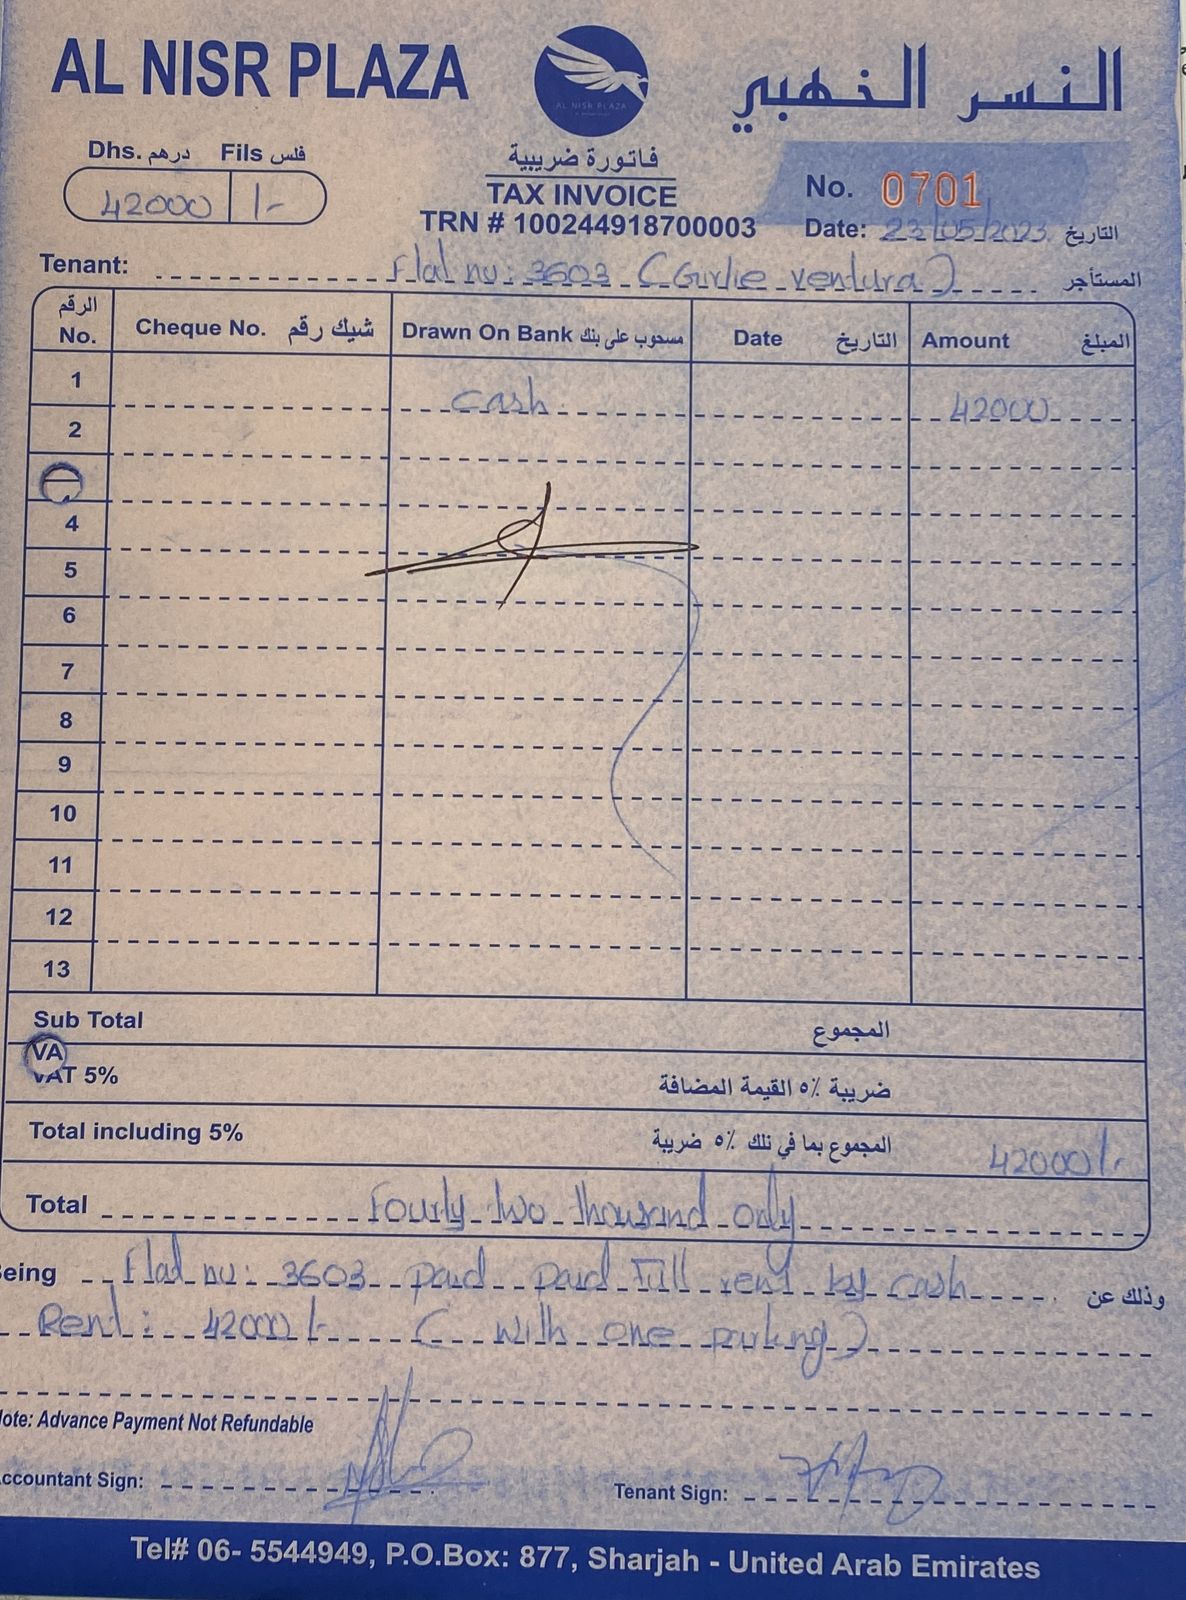 AL NISR PLAZA
AL NISR PLAZA
النسر الذهبي
Dhs. درهم Fils فلس
42000 /-
فاتورة ضريبية
TAX INVOICE
TRN # 100244918700003
No. 0701
Date: 23/05/2023 التاريخ
Tenant: Flat no: 3603 (Girlie ventura) المستأجر
الرقم No. Cheque No. شيك رقم Drawn On Bank مسحوب على بنك Date التاريخ Amount المبلغ
1 cash 42000
2
4
5
6
7
8
9
10
11
12
13
Sub Total المجموع
VA
VAT 5% ضريبة ٥٪ القيمة المضافة
Total including 5% المجموع بما في ذلك ٥٪ ضريبة 42000/-
Total Fourty two thousand only
Being Flat no: 3603 paid paid Full rent by cash وذلك عن
Rent: 42000/- (with one parking)
Note: Advance Payment Not Refundable
Accountant Sign: Tenant Sign:
Tel# 06- 5544949, P.O.Box: 877, Sharjah - United Arab Emirates